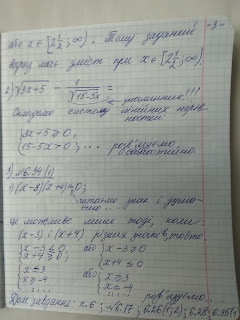 -3-
або x ∈ [2½; ∞). Тому заданий
вираз має зміст при x ∈ [2½; ∞)
2) √3x+5 - 1/√15-5x =
знаменник!!!
Складемо систему лінійних нерів-
ностей
{3x+5 ≥ 0,
{15-5x > 0; .... розв'язуємо
самостійно.
3) №6.34(1)
1) (x-3)(x+4) ≤ 0;
читаємо знак і думає-
це можливо лише тоді, коли
(x-3) і (x+4) різних знаків, тобто
{x-3 ≤ 0 або {x-3 ≥ 0
{x+4 ≥ 0; {x+4 ≤ 0
{x ≤ 3 або {x ≥ 3
{x ≥ -4 {x ≤ -4
.... .... розв'язуємо
Дом. завдання: п.6; №6.17; 6.26(1,2); 6.28; 6.35(1)